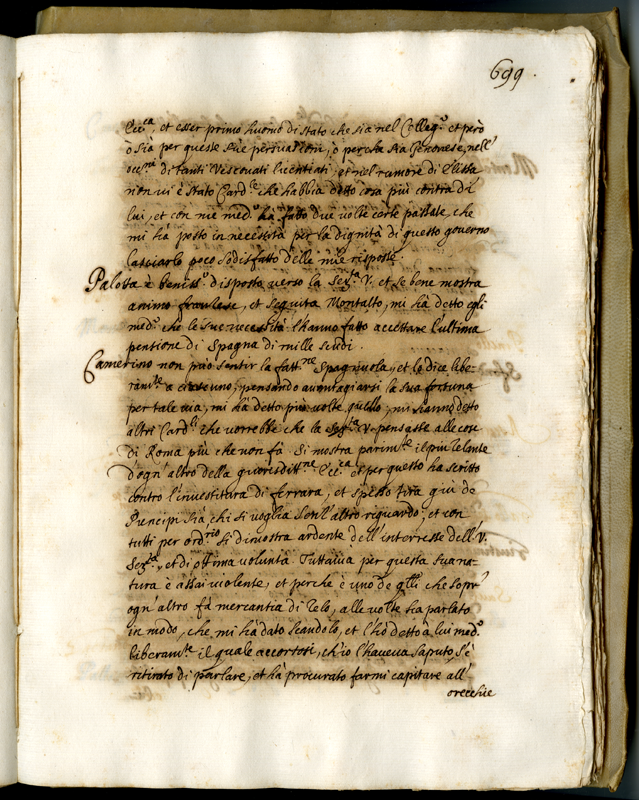 699.
Ecc.ca, et esser primo huomo di stato che sia nel Colleg.o et però
ò sia per queste sue persuasioni, ò perche sia Genovese, nell'
occ.ne di tanti Vescovati licentiati, et nel rumore di
non vi è stato Card.le che habbia detto cosa più contra di
lui, et con me med.o hà fatto due volte certe passate, che
mi hà posto in necessità per la dignità di questo governo
lasciarlo poco sodisfatto delle mie risposte.
Palotta è beniss.o disposto verso la Ser.ta V. et se bene mostra
animo franzese, et seguita Montalto, mi hà detto egli
med.o che le sue necessità l'hanno fatto accettare l'ultima
pentione di Spagna di mille scudi.
Camerino non può sentir la fatt.ne Spagnuola, et lo dice libe=
ram.te a ciascuno; pensando avantagiarsi la sua fortuna
per tale via, mi hà detto più volte quello, mi hanno detto
altri Card.li che vorrebbe che la Ser.ta V. pensasse alle cose
di Roma più che non fà. Si mostra parim.te il più zelante
d'ogn'altro della giurisditt.ne Ecc.ca et per questo ha scritto
contro l'investitura di ferrara, et spesso tira giù de
Prencipi sia chi si voglia senz'altro riguardo; et con
tutti per ord.rio si dimostra ardente dell'interesse dell'V.
Ser.tà, et di ottima voluntà. Tuttavia per questa sua na=
tura è assai violente, et perche è uno de q.lli che sopr'
ogn'altro fà mercantia di zelo, alle volte ha parlato
in modo, che mi hà dato scandolo, et l'hò detto à lui med.o
liberam.te il quale accortosi, ch'io l'haveva saputo, s'è
ritirato di parlare, et hà procurato farmi capitare all'
orecchie